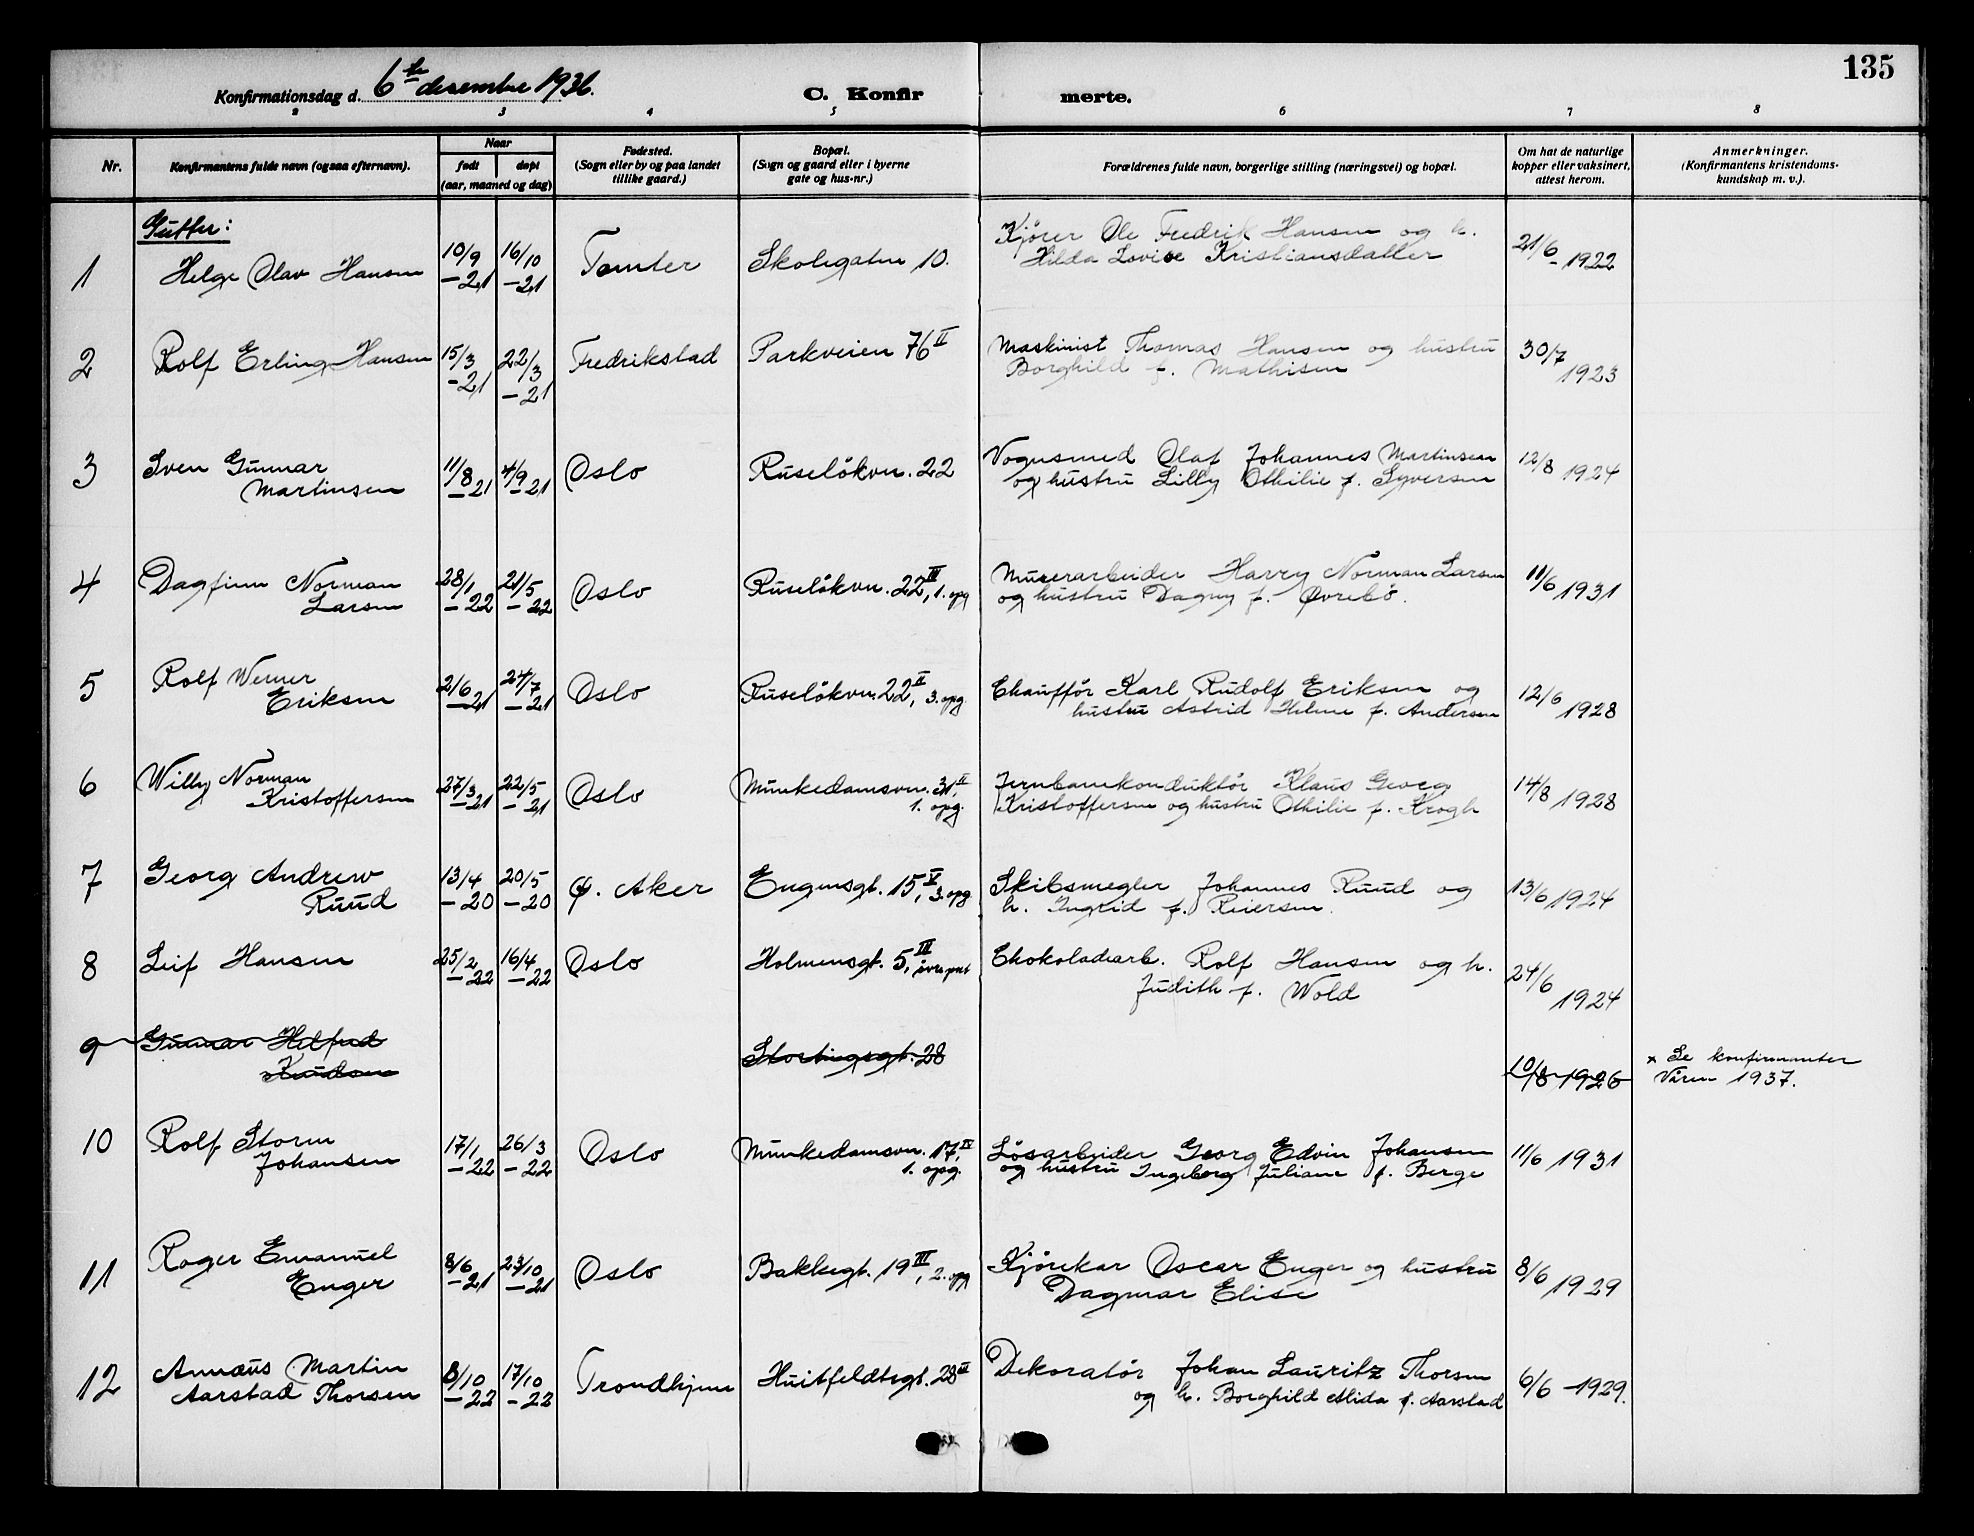 135
Konfirmationsdag d. 6te desember 1936.
C. Konfir merte.
2 3 4 5 6 7 8
Nr.
Konfirmantens fulde navn (ogsaa efternavn).
Naar
født døpt
(aar, maaned og dag)
Fødested.
(Sogn eller by og paa landet
tillike gaard.)
Bopæl.
(Sogn og gaard eller i byerne
gate og hus-nr.)
Forældrenes fulde navn, borgerlige stilling (næringsvei) og bopæl.
Om hat de naturlige
kopper eller vaksinert,
attest herom.
Anmerkninger.
(Konfirmantens kristendoms-
kundskap m. v.).
Gutter:
1 Helge Olav Hansen 10/9 -21 16/10 -21 Tomter Skolegaten 10. Kjører Ole Fredrik Hansen og h.
Hilda Lovise Kristiansdatter 21/6 - 1922
2 Rolf Erling Hansen 15/3 -21 22/3 -21 Fredrikstad Parkveien 76 II Maskinist Thomas Hansen og hustru
Borghild f. Mathisen 30/7 1923
3 Sven Gunnar
Martinsen 11/8 -21 4/9 -21 Oslo Ruseløkvn. 22 Vognsmed Olaf Johannes Martinsen
og hustru Lilly Othilie f. Syversen 12/8 1924
4 Dagfinn Norman
Larsen 28/1 -22 21/5 -22 Oslo Ruseløkvn. 22 III, 1. opg Murerarbeider Harry Norman Larsen
og hustru Dagny f. Øvrebø. 11/6 1931
5 Rolf Werner
Eriksen 2/6 -21 24/7 -21 Oslo Ruseløkvn. 22 II, 3. opg. Chauffør Karl Rudolf Eriksen og
hustru Astrid Helene f. Andersen 12/6 1928
6 Willy Norman
Kristoffersen 27/3 -21 22/5 -21 Oslo Munkedamsvn. 31 II,
1. opg. Jernbanekonduktør Klaus Georg
Kristoffersen og hustru Othilie f. Krogh 14/8 1928
7 Georg Andrew
Ruud 13/4 -20 20/5 -20 Ø. Aker Engensgt. 15 V, 3. opg Skibsmegler Johannes Ruud og
h. Ingrid f. Reiersen. 13/6 1924
8 Leif Hansen 25/2 -22 16/4 -22 Oslo Holmensgt. 5, III Chokoladearb. Rolf Hansen og h.
Judith f. Wold 24/6 1924
9 Gunnar Helfred
Knudsen Stortingsgt. 28 10/8 1926 x Se konfirmanter
Våren 1937.
10 Rolf Storm
Johansen 17/1 -22 26/3 -22 Oslo Munkedamsvn. 17 IV,
1. opg. Løsarbeider Georg Edvin Johansen
og hustru Ingeborg Juliane f. Berge 11/6 1931
11 Roger Emanuel
Enger 8/6 -21 23/10 -21 Oslo Bakkegt. 19 III, 2. opg Kjørekar Oscar Enger og hustru
Dagmar Elise 8/6 1929
12 Annæus Martin
Aarstad Thorsen 8/10 -22 17/10 -22 Trondhjem Huitfeldtsgt. 28 II Dekoratør Johan Lauritz Thorsen
og h. Borghild Alida f. Aarstad 6/6 - 1929.